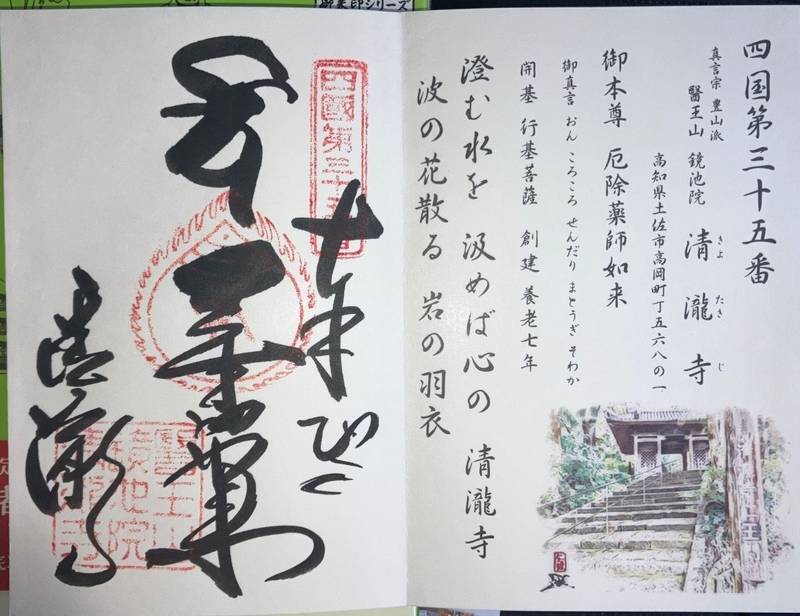 御朱印シリーズ
四国第三十五番
真言宗 豊山派
醫王山 鏡池院 清瀧寺
きよ たき じ
高知県土佐市高岡町丁五六八の一
御本尊 厄除薬師如来
御真言 おん ころころ せんだり まとうぎ そわか
開基 行基菩薩 創建 養老七年
澄む水を 汲めば心の 清瀧寺
波の花散る 岩の羽衣
四國第三十五番
奉拝
清瀧
醫王山
鏡池院